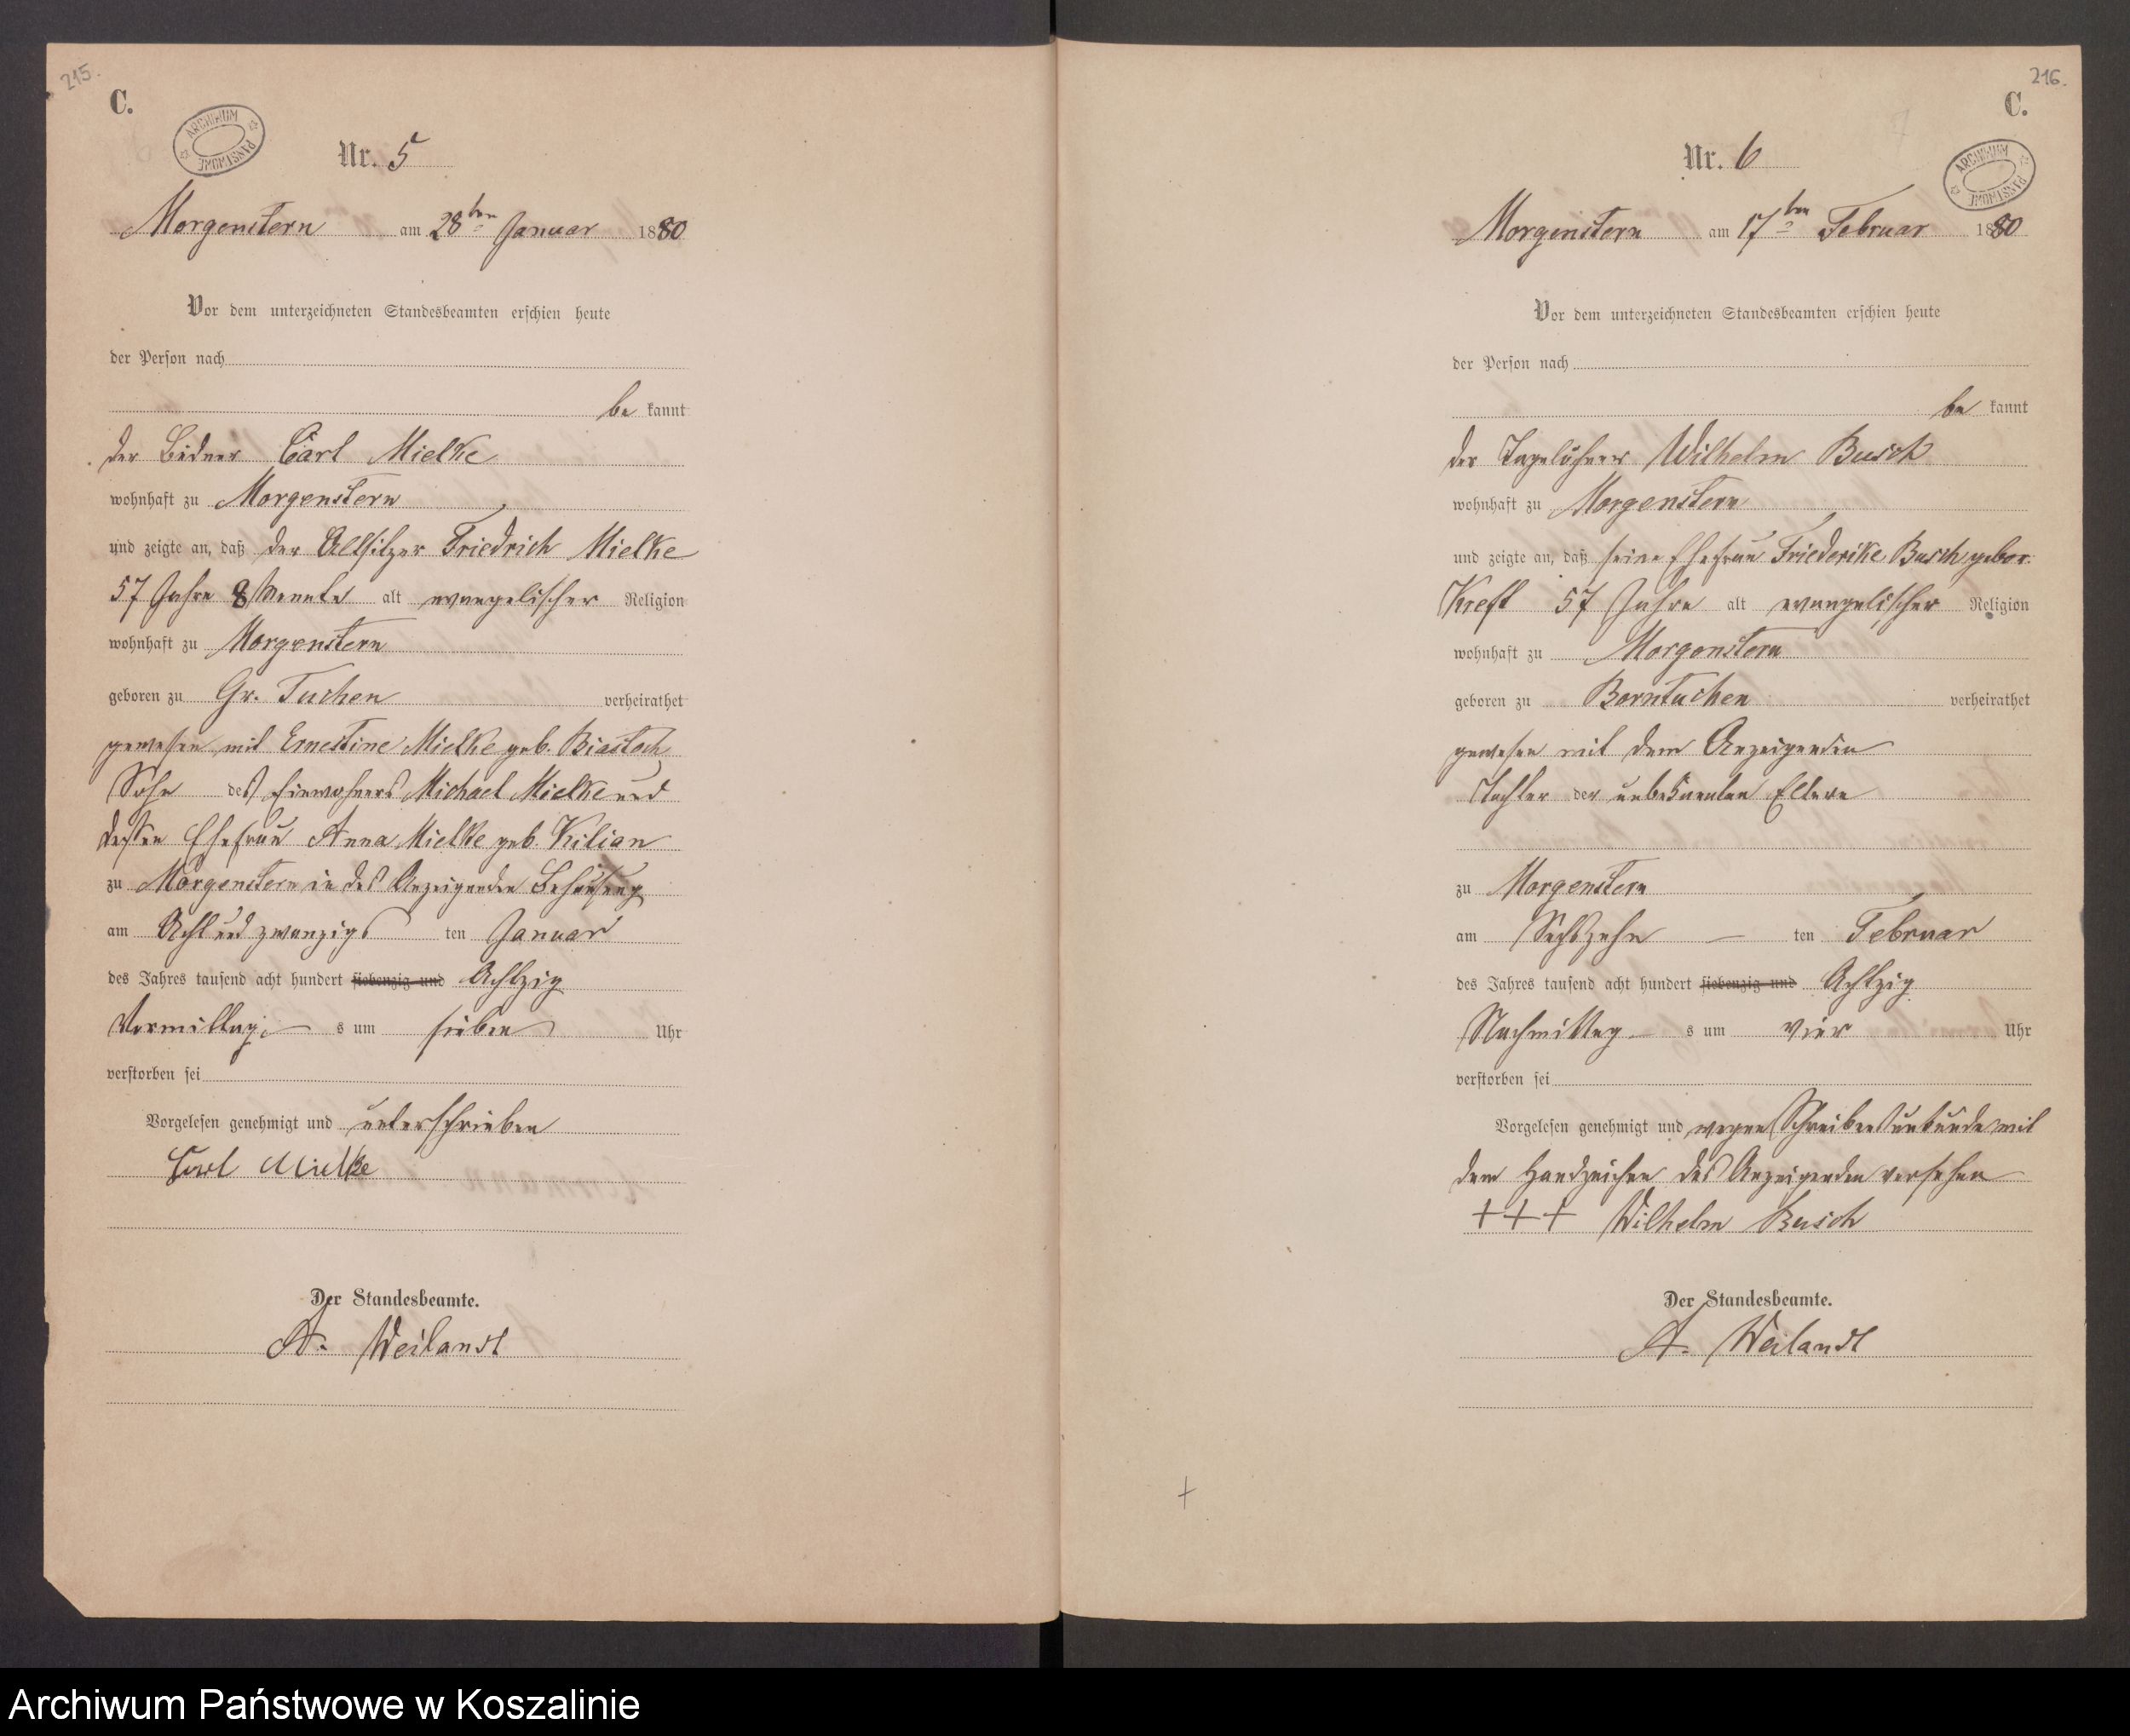 215.
C.
ARCHIWUM PAŃSTWOWE
Nr. 5
Morgenstern am 28ten Januar 1880
Vor dem unterzeichneten Standesbeamten erschien heute
der Person nach
be kannt
der Büdner Carl Mielke
wohnhaft zu Morgenstern
und zeigte an, daß der Altsitzer Friedrich Mielke
57 Jahre 8 Monate alt evangelischer Religion
wohnhaft zu Morgenstern
geboren zu Gr. Tuchen verheirathet
gewesen mit Ernestine Mielke geb. Biastoch
Sohn des Einwohners Michael Mielke und
dessen Ehefrau Anna Mielke geb. Kilian
zu Morgenstern in des Anzeigenden Behausung
am Acht und zwanzigs ten Januar
des Jahres tausend acht hundert siebenzig und Achtzig
Vormittag s um sieben Uhr
verstorben sei
Vorgelesen genehmigt und unterschrieben
Carl Mielke
Der Standesbeamte.
A. Weilandt
216.
C.
ARCHIWUM PAŃSTWOWE
Nr. 6
Morgenstern am 17ten Februar 1880
Vor dem unterzeichneten Standesbeamten erschien heute
der Person nach
be kannt
der Tagelöhner Wilhelm Busch
wohnhaft zu Morgenstern
und zeigte an, daß seine Ehefrau Friederike Busch gebor.
Kreft 57 Jahre alt evangelischer Religion
wohnhaft zu Morgenstern
geboren zu Borntuchen verheirathet
gewesen mit dem Anzeigenden
Tochter der unbekannten Eltern
zu Morgenstern
am Sechszehn – ten Februar
des Jahres tausend acht hundert siebenzig und Achtzig
Nachmittag s um vier Uhr
verstorben sei
Vorgelesen genehmigt und wegen Schreibensunkunde mit
dem Handzeichen des Anzeigenden versehen
+++ Wilhelm Busch
Der Standesbeamte.
A. Weilandt
Archiwum Państwowe w Koszalinie